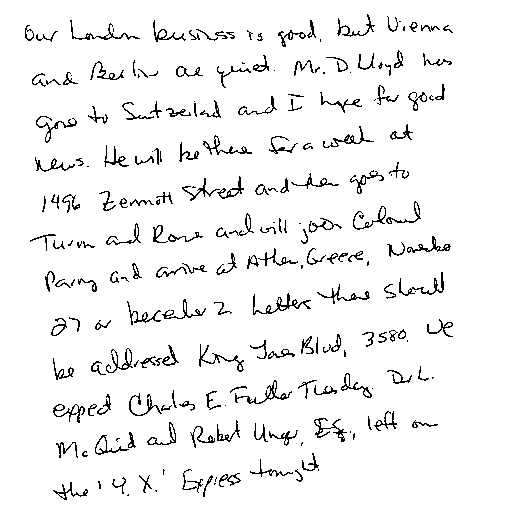 Our London business is good, but Vienna
and Berlin are quiet. Mr. D. Lloyd has
gone to Switzerland and I hope for good
news. He will be there for a week at
1496 Zermott Street and then goes to
Turin and Rome and will join Colonel
Parry and arrive at Athens, Greece, November
27 or December 2. Letters there should
be addressed King James Blvd, 3580. We
expect Charles E. Fuller Tuesday. Dr. L.
McQuid and Robert Unger, Esq., left on
the 'Y. X.' Express tonight.